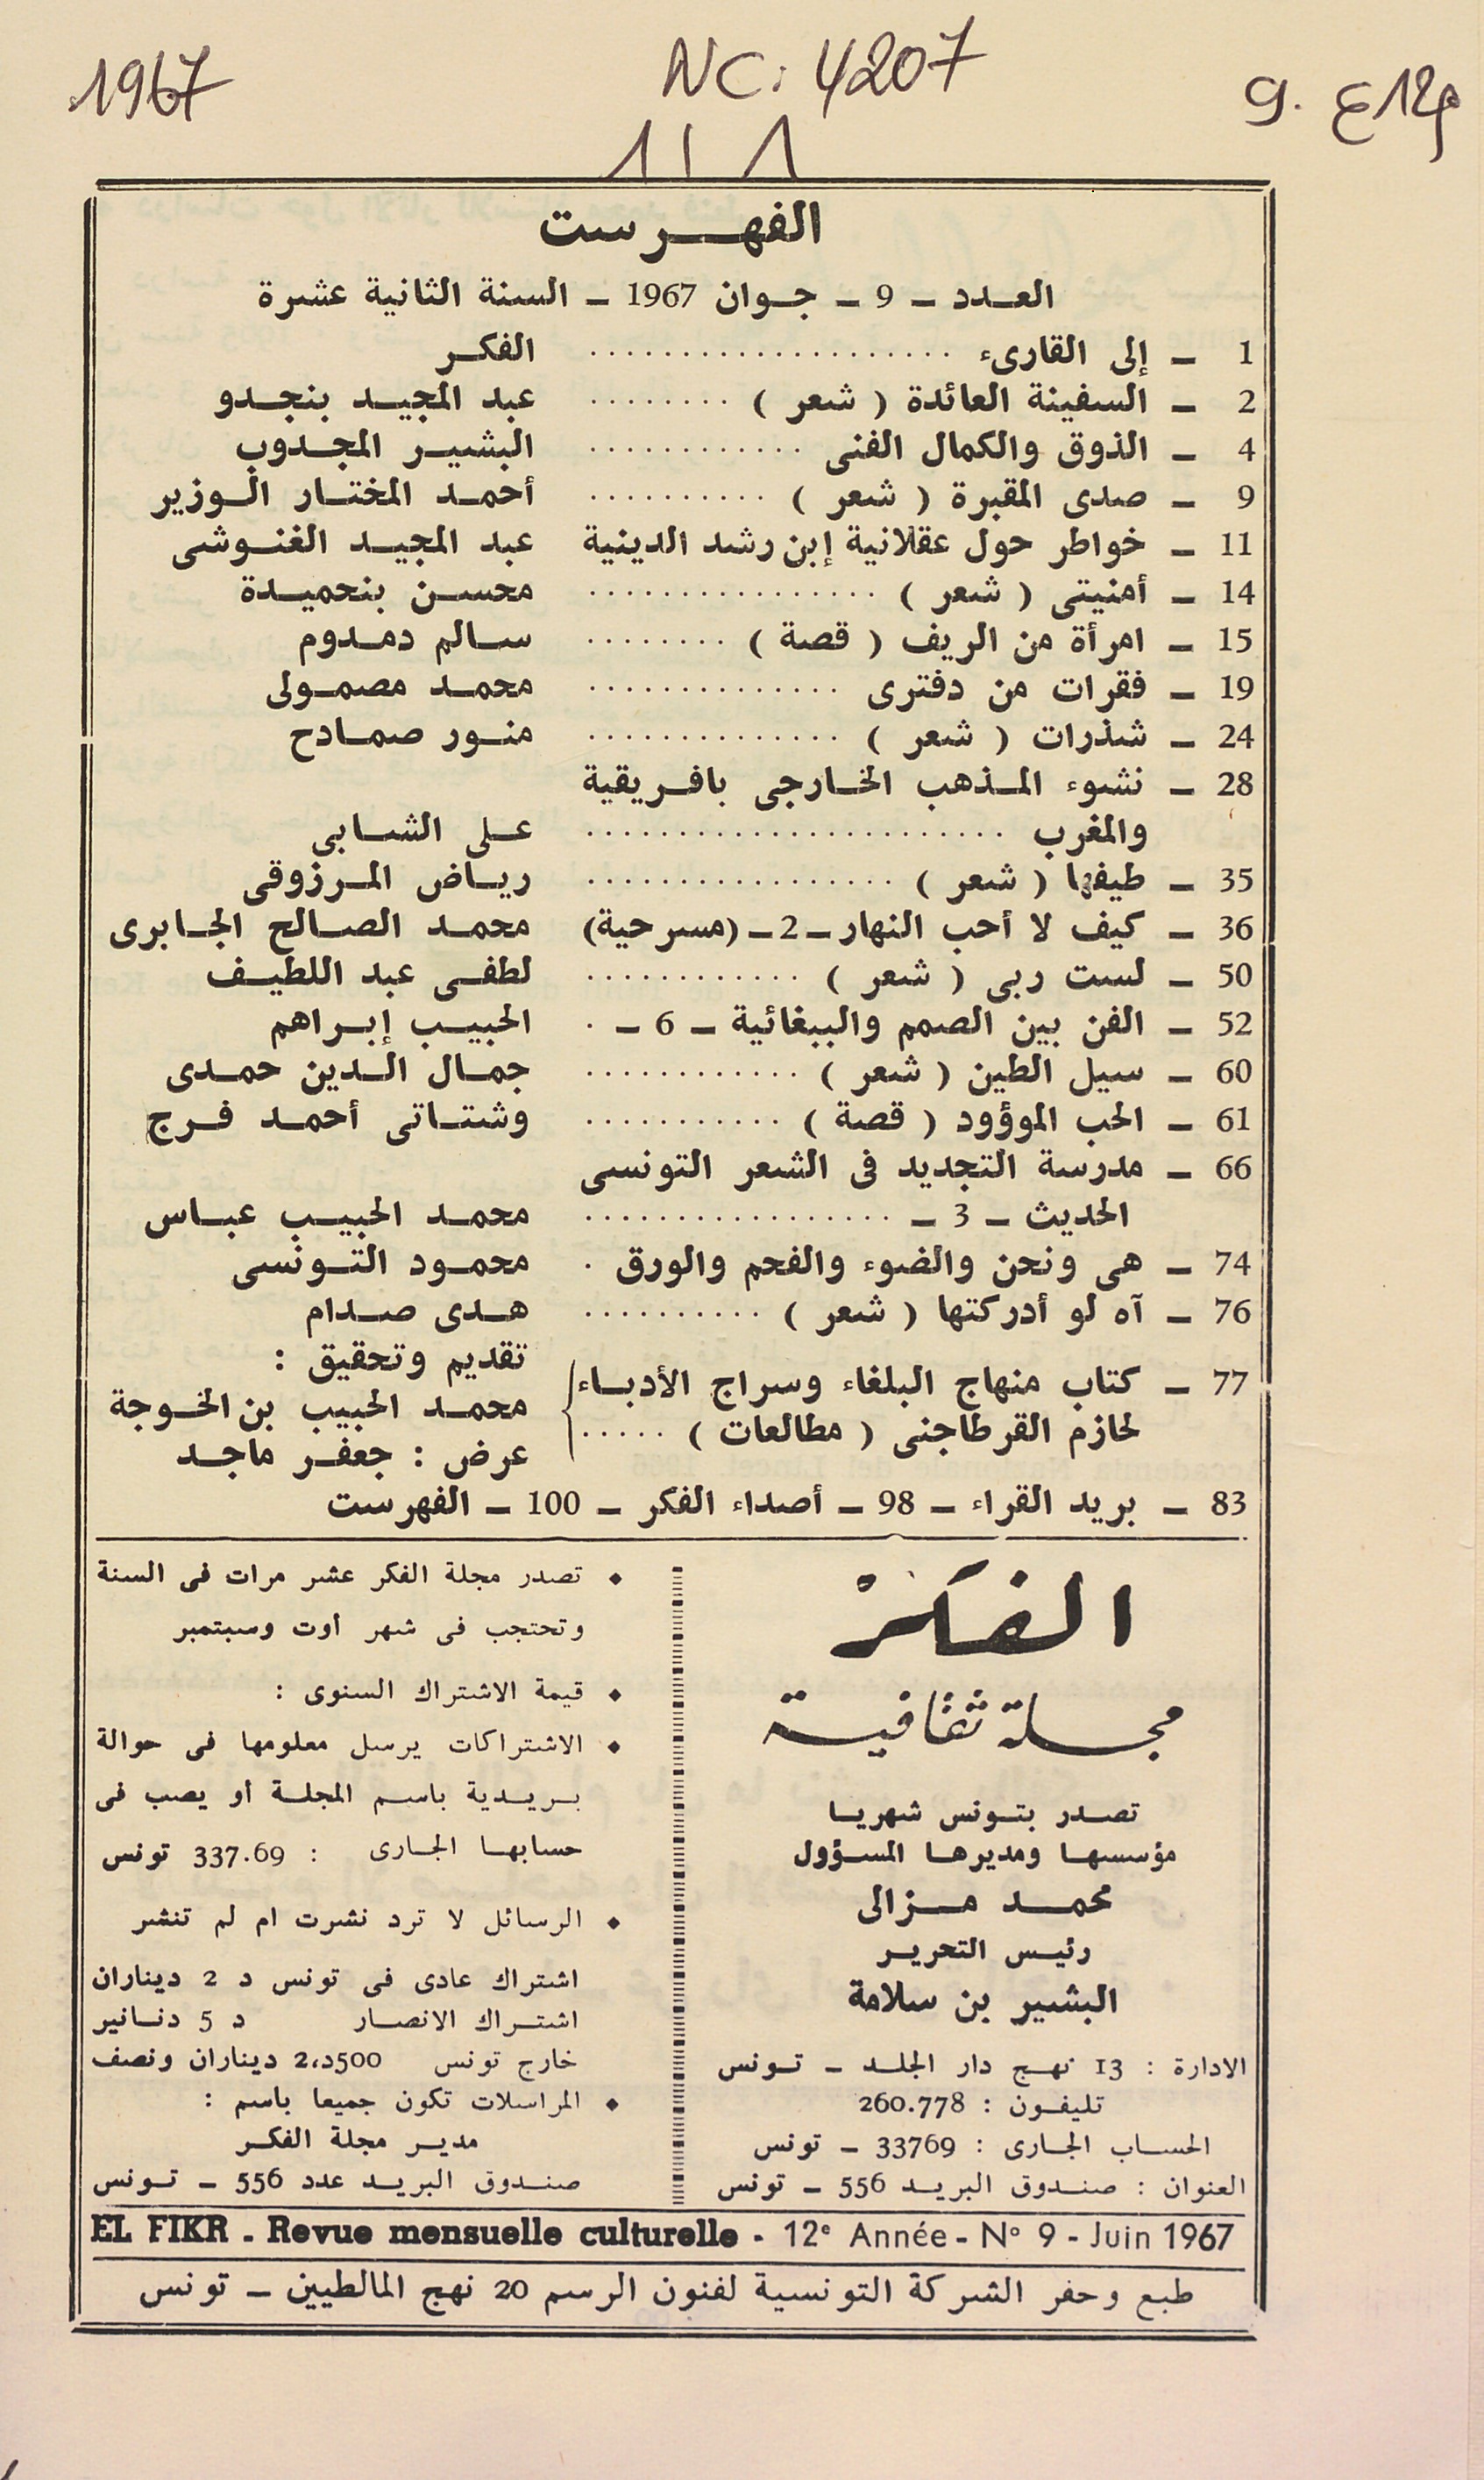 1967
NC: 4207
9. ع 12 م
الفهرست
العدد ـ 9 ـ جوان 1967 ـ السنة الثانية عشرة
1 ـ إلى القارىء .................... الفكر
2 ـ السفينة العائدة ( شعر ) ........ عبد المجيد بنجدو
4 ـ الذوق والكمال الفنى ............ البشير المجدوب
9 ـ صدى المقبرة ( شعر ) .......... أحمد المختار الوزير
11 ـ خواطر حول عقلانية إبن رشد الدينية عبد المجيد الغنوشى
14 ـ أمنيتى ( شعر ) ................ محسن بنحميدة
15 ـ امرأة من الريف ( قصة ) ........ سالم دمدوم
19 ـ فقرات من دفترى .............. محمد مصمولى
24 ـ شذرات ( شعر ) .............. منور صمادح
28 ـ نشوء المذهب الخارجى بافريقية
والمغرب ....................... على الشابى
35 ـ طيفها ( شعر ) ................. رياض المرزوقى
36 ـ كيف لا أحب النهار ـ 2 ـ (مسرحية) محمد الصالح الجابرى
50 ـ لست ربى ( شعر ) ............ لطفى عبد اللطيف
52 ـ الفن بين الصمم والببغائية ـ 6 ـ . الحبيب إبراهم
60 ـ سيل الطين ( شعر ) ............ جمال الدين حمدى
61 ـ الحب الموؤود ( قصة ) ........... وشتاتى أحمد فرج
66 ـ مدرسة التجديد فى الشعر التونسى
الحديث ـ 3 ـ ................. محمد الحبيب عباس
74 ـ هى ونحن والضوء والفحم والورق . محمود التونسى
76 ـ آه لو أدركتها ( شعر ) .......... هدى صدام
تقديم وتحقيق :
77 ـ كتاب منهاج البلغاء وسراج الأدباء
محمد الحبيب بن الخوجة
لحازم القرطاجنى ( مطالعات ) .....
عرض : جعفر ماجد
83 ـ بريد القراء ـ 98 ـ أصداء الفكر ـ 100 ـ الفهرست
الفكر
مجلة ثقافية
تصدر بتونس شهريا
مؤسسها ومديرها المسؤول
محمد مزالى
رئيس التحرير
البشير بن سلامة
الادارة : 13 نهج دار الجلد ـ تونس
تليفون : 260.778
الحساب الجارى : 33769 ـ تونس
العنوان : صندوق البريد 556 ـ تونس
♦ تصدر مجلة الفكر عشر مرات فى السنة
وتحتجب فى شهر أوت وسبتمبر
♦ قيمة الاشتراك السنوى :
♦ الاشتراكات يرسل معلومها فى حوالة
بريدية باسم المجلة أو يصب فى
حسابها الجارى : 337.69 تونس
♦ الرسائل لا ترد نشرت ام لم تنشر
اشتراك عادى فى تونس د 2 ديناران
اشتراك الانصار د 5 دنانير
خارج تونس 2،د500 ديناران ونصف
♦ المراسلات تكون جميعا باسم :
مدير مجلة الفكر
صندوق البريد عدد 556 ـ تونس
EL FIKR - Revue mensuelle culturelle - 12e Année - N° 9 - Juin 1967
طبع وحفر الشركة التونسية لفنون الرسم 20 نهج المالطيين ـ تونس